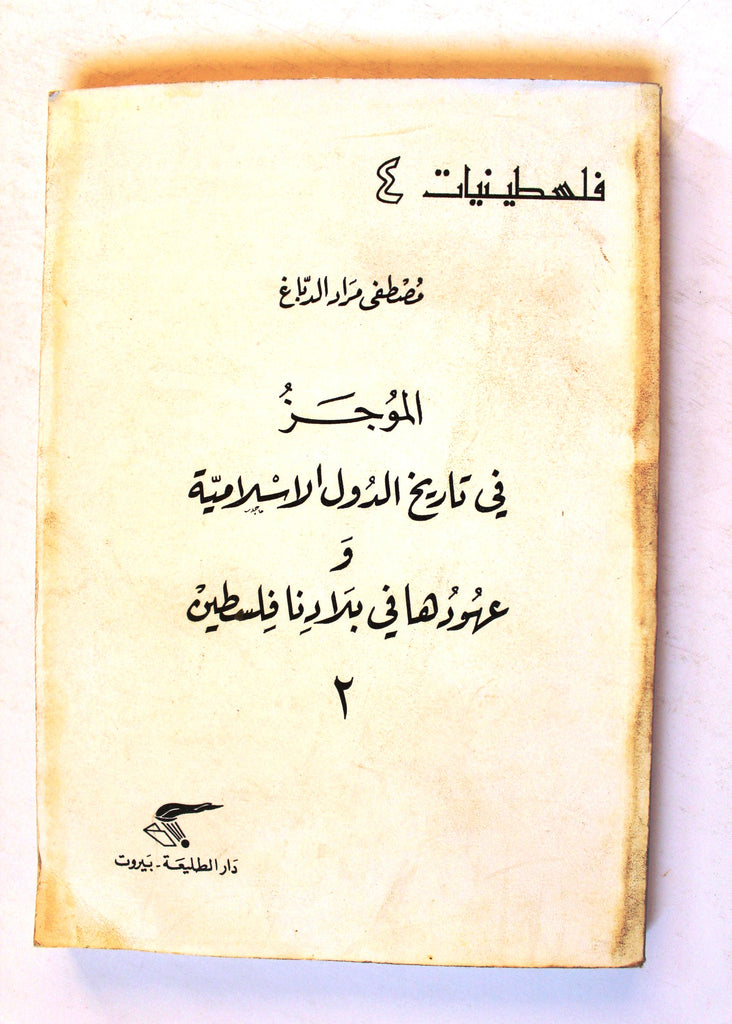 فلسطينيات ٤
مُصْطفى مرَاد الدبّاغ
الموُجَـزُ
في تاريخ الدُول الاسْلاميّة
وَ
عهُودُها في بلَادِنا فِلسطين
٢
دَار الطليعَة - بَيروت